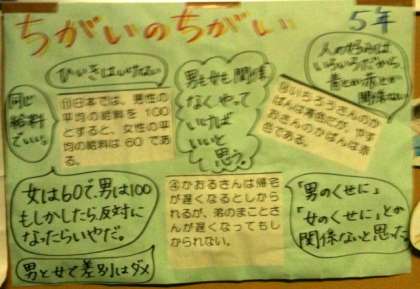 ちがいのちがい
5年
ひいきはいけない
同じ
給料
でいい。
⑪日本では、男性の
平均の給料を100
とすると、女性の平
均の給料は60であ
る。
男も女も関係
なくやって
いければ
いいと
思う。
人の好みは
いろいろだから
青とか赤とか
関係ない
いちろうさんのか
ばんは青色だが、やす
おさんのかばんは赤
色である。
女は60で、男は100
もしかしたら、反対に
なったらいやだ。
男と女で差別はダメ
④かおるさんは帰宅
が遅くなるとしから
れるが、弟のまことさ
んが遅くなってもし
かられない。
「男のくせに」
「女のくせに」とか
関係ないと思った